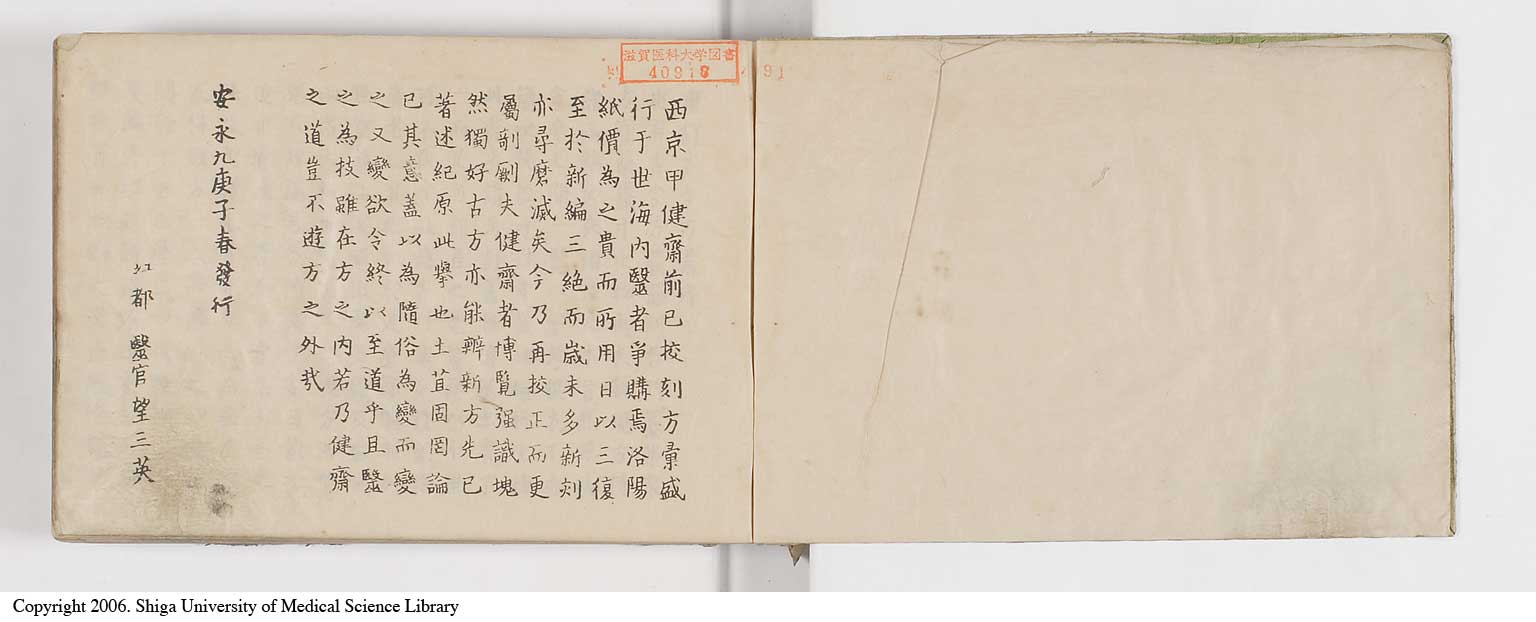 滋賀医科大学図書
40918
西京甲健齋前已挍刻方彙盛
行于世海内毉者爭購焉洛陽
紙價為之貴而所用日以三復
至於新編三絶而歳未多新刻
亦尋磨滅矣今乃再挍正而更
屬剞劂夫健齋者博覧强識塊
然獨好古方亦能辨新方先已
著述紀原此擧也土苴固罔論
已其意蓋以為隨俗為變而變
之又變欲令終以至道乎且毉
之為技雖在方之内若乃健齋
之道豈不遊方之外哉
安永九庚子春發行
江都 毉官望三英
Copyright 2006. Shiga University of Medical Science Library